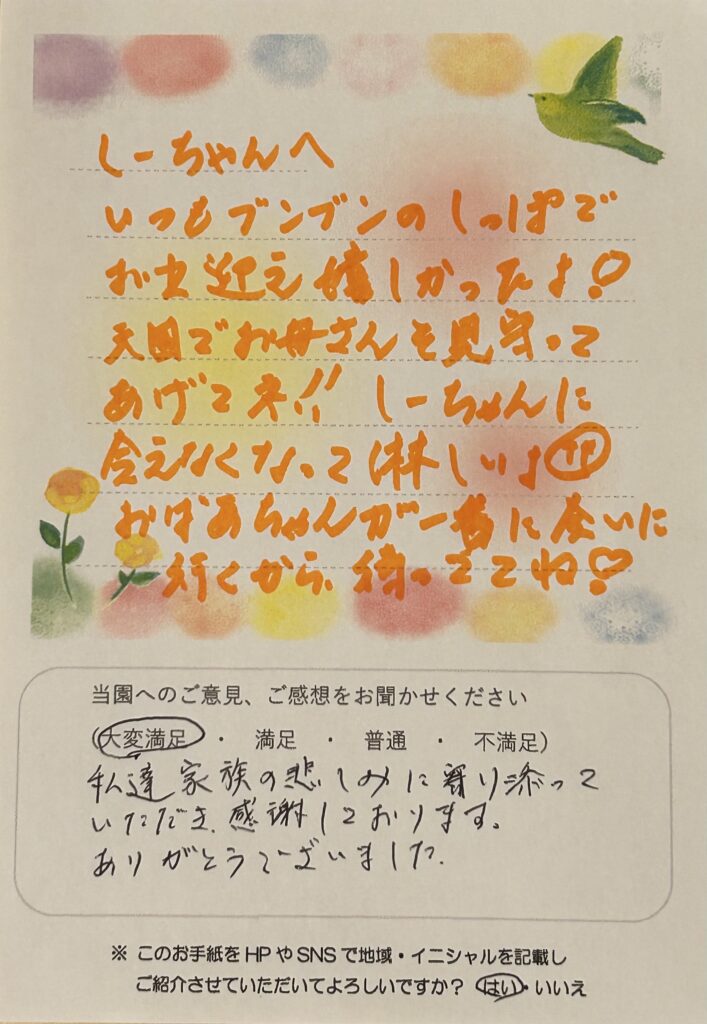 しーちゃんへ
いつもブンブンのしっぽで
お出迎え嬉しかったよ!
天国でお母さんを見守って
あげてネ!! しーちゃんに
会えなくなって淋しいよ
おばあちゃんが一番に会いに
行くから、待っててね♡
当園へのご意見、ご感想をお聞かせください
(大変満足 ・ 満足 ・ 普通 ・ 不満足)
私達家族の悲しみに寄り添って
いただき、感謝しております。
ありがとうございました。
※ このお手紙をHPやSNSで地域・イニシャルを記載し
ご紹介させていただいてよろしいですか? はい・いいえ